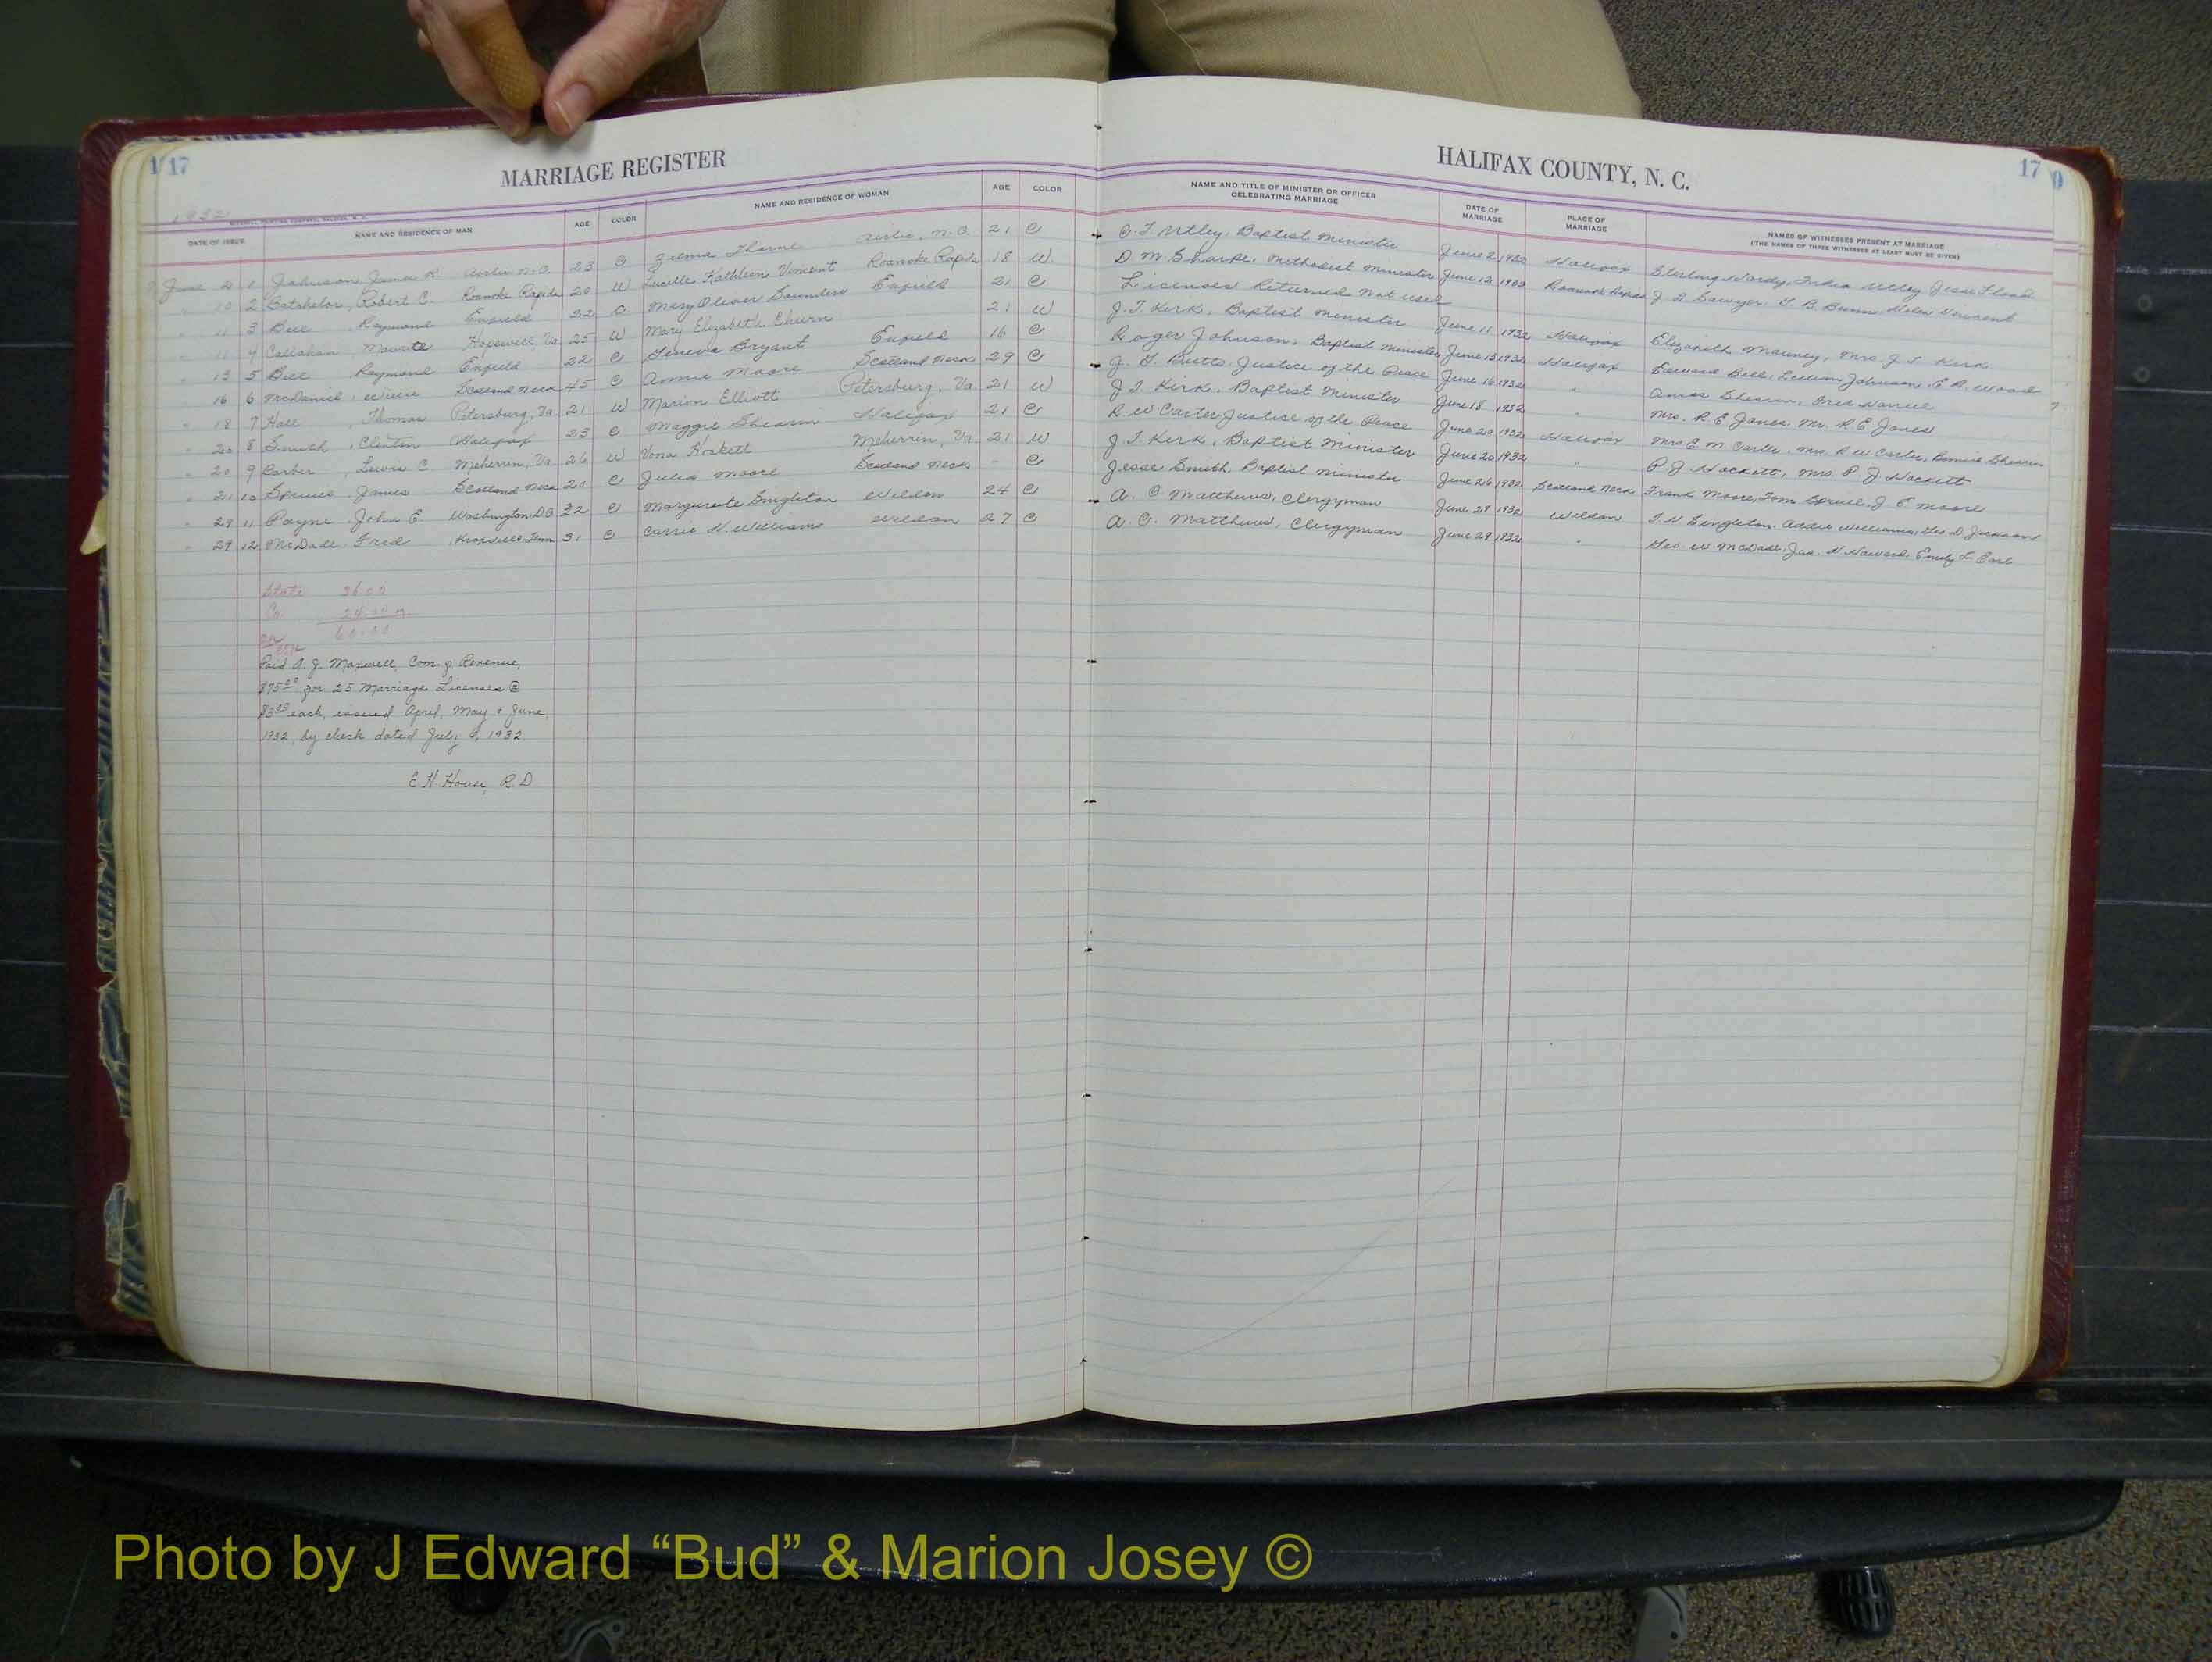 117
MARRIAGE REGISTER
HALIFAX COUNTY, N. C.
17
1932
DATE OF ISSUE NAME AND RESIDENCE OF MAN AGE COLOR NAME AND RESIDENCE OF WOMAN AGE COLOR NAME AND TITLE OF MINISTER OR OFFICER CELEBRATING MARRIAGE DATE OF MARRIAGE PLACE OF MARRIAGE NAMES OF WITNESSES PRESENT AT MARRIAGE (THE NAMES OF THREE WITNESSES AT LEAST MUST BE GIVEN)
June 2 1 Johnson, James R. Airlie N.C. 23 C Zelma Thorne Airlie, N.C. 21 C C. T. Utley, Baptist Minister June 2 1932 Halifax Sterling Hardy, India Utley Jesse Flood
" 10 2 Batchelor, Robert C. Roanoke Rapids 20 W Lucille Kathleen Vincent Roanoke Rapids 18 W. D. M. Sharpe, Methodist Minister June 12 1932 Roanoke Rapids Sawyer, B. Bunn, Helen Vincent
" 11 3 Bell, Raymond Enfield 22 C Mary Oliver Saunders Enfield 21 C Licenses Returned not used
" 11 4 Callahan, Hopewell Va. 25 W Mary Elizabeth Churn 21 W J. T. Kirk, Baptist Minister June 11 1932 Halifax Elizabeth Mauney, Mrs. J. T. Kirk
" 13 5 Bell Raymond Enfield 22 C Geneva Bryant Enfield 16 C Roger Johnson, Baptist Minister June 13 1932 Halifax Edward Bell, Johnson, Wood
" 16 6 McDaniel, Willie Scotland Neck 45 C Annie Moore Scotland Neck 29 C J. Butts, Justice of the Peace June 16 1932 " Annie Shearin, Fred Harrell
" 18 7 Hall, Thomas Petersburg, Va. 21 W Marion Elliott Petersburg, Va. 21 W J. T. Kirk, Baptist Minister June 18 1932 " Mrs. R. E. Jones Mr. R E Jones
" 20 8 Smith, Clinton Halifax 23 C Maggie Shearin Halifax 21 C R W Carter Justice of the Peace June 20 1932 Halifax Mrs E. M. Carter, Mrs. R W Carter, Shearin
" 20 9 Barber, Lewis C. Meherrin, Va 26 W Vona Hackett Meherrin, Va. 21 W J. T. Kirk, Baptist Minister June 20 1932 " P. J. Hackett, Mrs. P. J. Hackett
" 21 10 Spruill James Scotland Neck 21 C Julia Moore Scotland Neck - C Jesse Smith, Baptist Minister June 26 1932 Scotland Neck Frank Moore, Tom Spruill, J E Moore
" 29 11 Payne, John E. Washington, D.C. 32 C Marguerite Singleton Weldon 24 C A. G. Matthews, Clergyman June 29 1932 Weldon Singleton, Addie Williams, Geo D Jackson
" 29 12 McDade Fred Knoxville Tenn 31 C Carrie H. Williams Weldon 27 C A. G. Matthews, Clergyman June 29 1932 " Geo. W McDade, Jas. N Howard, Emily L. Earl
State 36.00
Co. 24.00
60.00
Paid A. J. Maxwell, Com. of Revenue,
$75.00 for 25 Marriage Licenses @
$3.00 each, issued April, May & June,
1932, by check dated July 1932.
E. H. House, R. D
Photo by J Edward “Bud” & Marion Josey ©